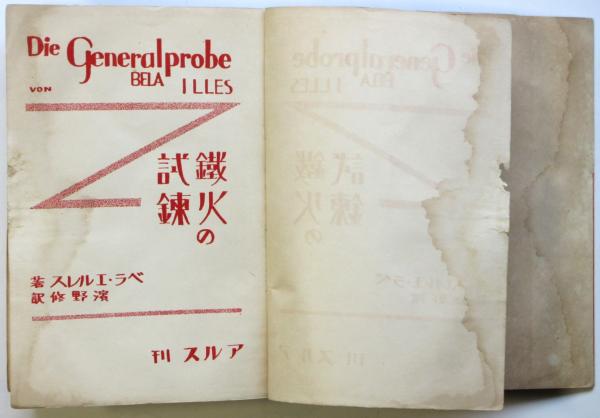 Die Generalprobe
VON BELA ILLES
鐵火の
試鍊
ベラ・エルレス著
濱野修訳
アルス刊